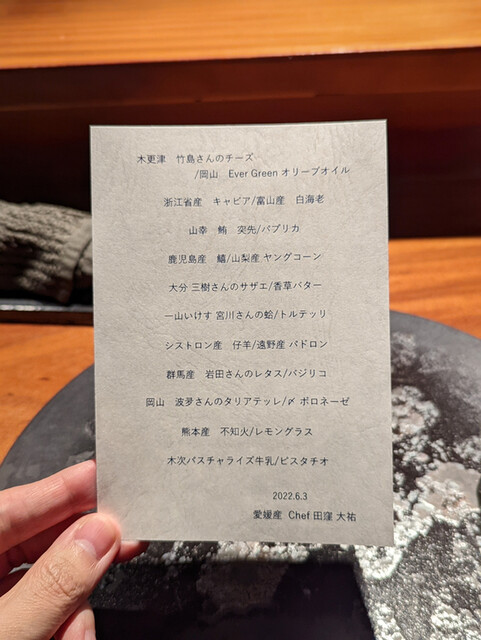 木更津 竹島さんのチーズ
/岡山 Ever Green オリーブオイル
浙江省産 キャビア/富山産 白海老
山幸 鮪 突先/パプリカ
鹿児島産 鱚/山梨産 ヤングコーン
大分 三樹さんのサザエ/香草バター
一山いけす 宮川さんの蛤/トルテッリ
シストロン産 仔羊/遠野産 パドロン
群馬産 岩田さんのレタス/バジリコ
岡山 波夛さんのタリアテッレ/〆 ボロネーゼ
熊本産 不知火/レモングラス
木次パスチャライズ牛乳/ピスタチオ
2022.6.3
愛媛産 Chef 田窪 大祐